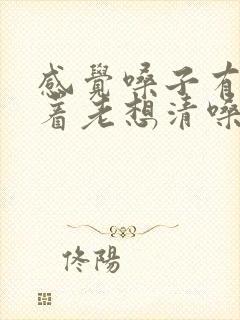 感覺嗓子有
着老想清嗓
佟陽